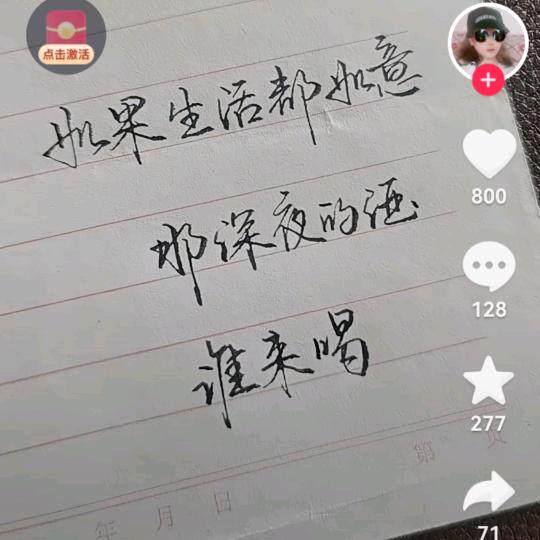 点击激活
如果生活都如意
那深夜的酒
谁来喝
800
128
277
71
第 页
年 月 日